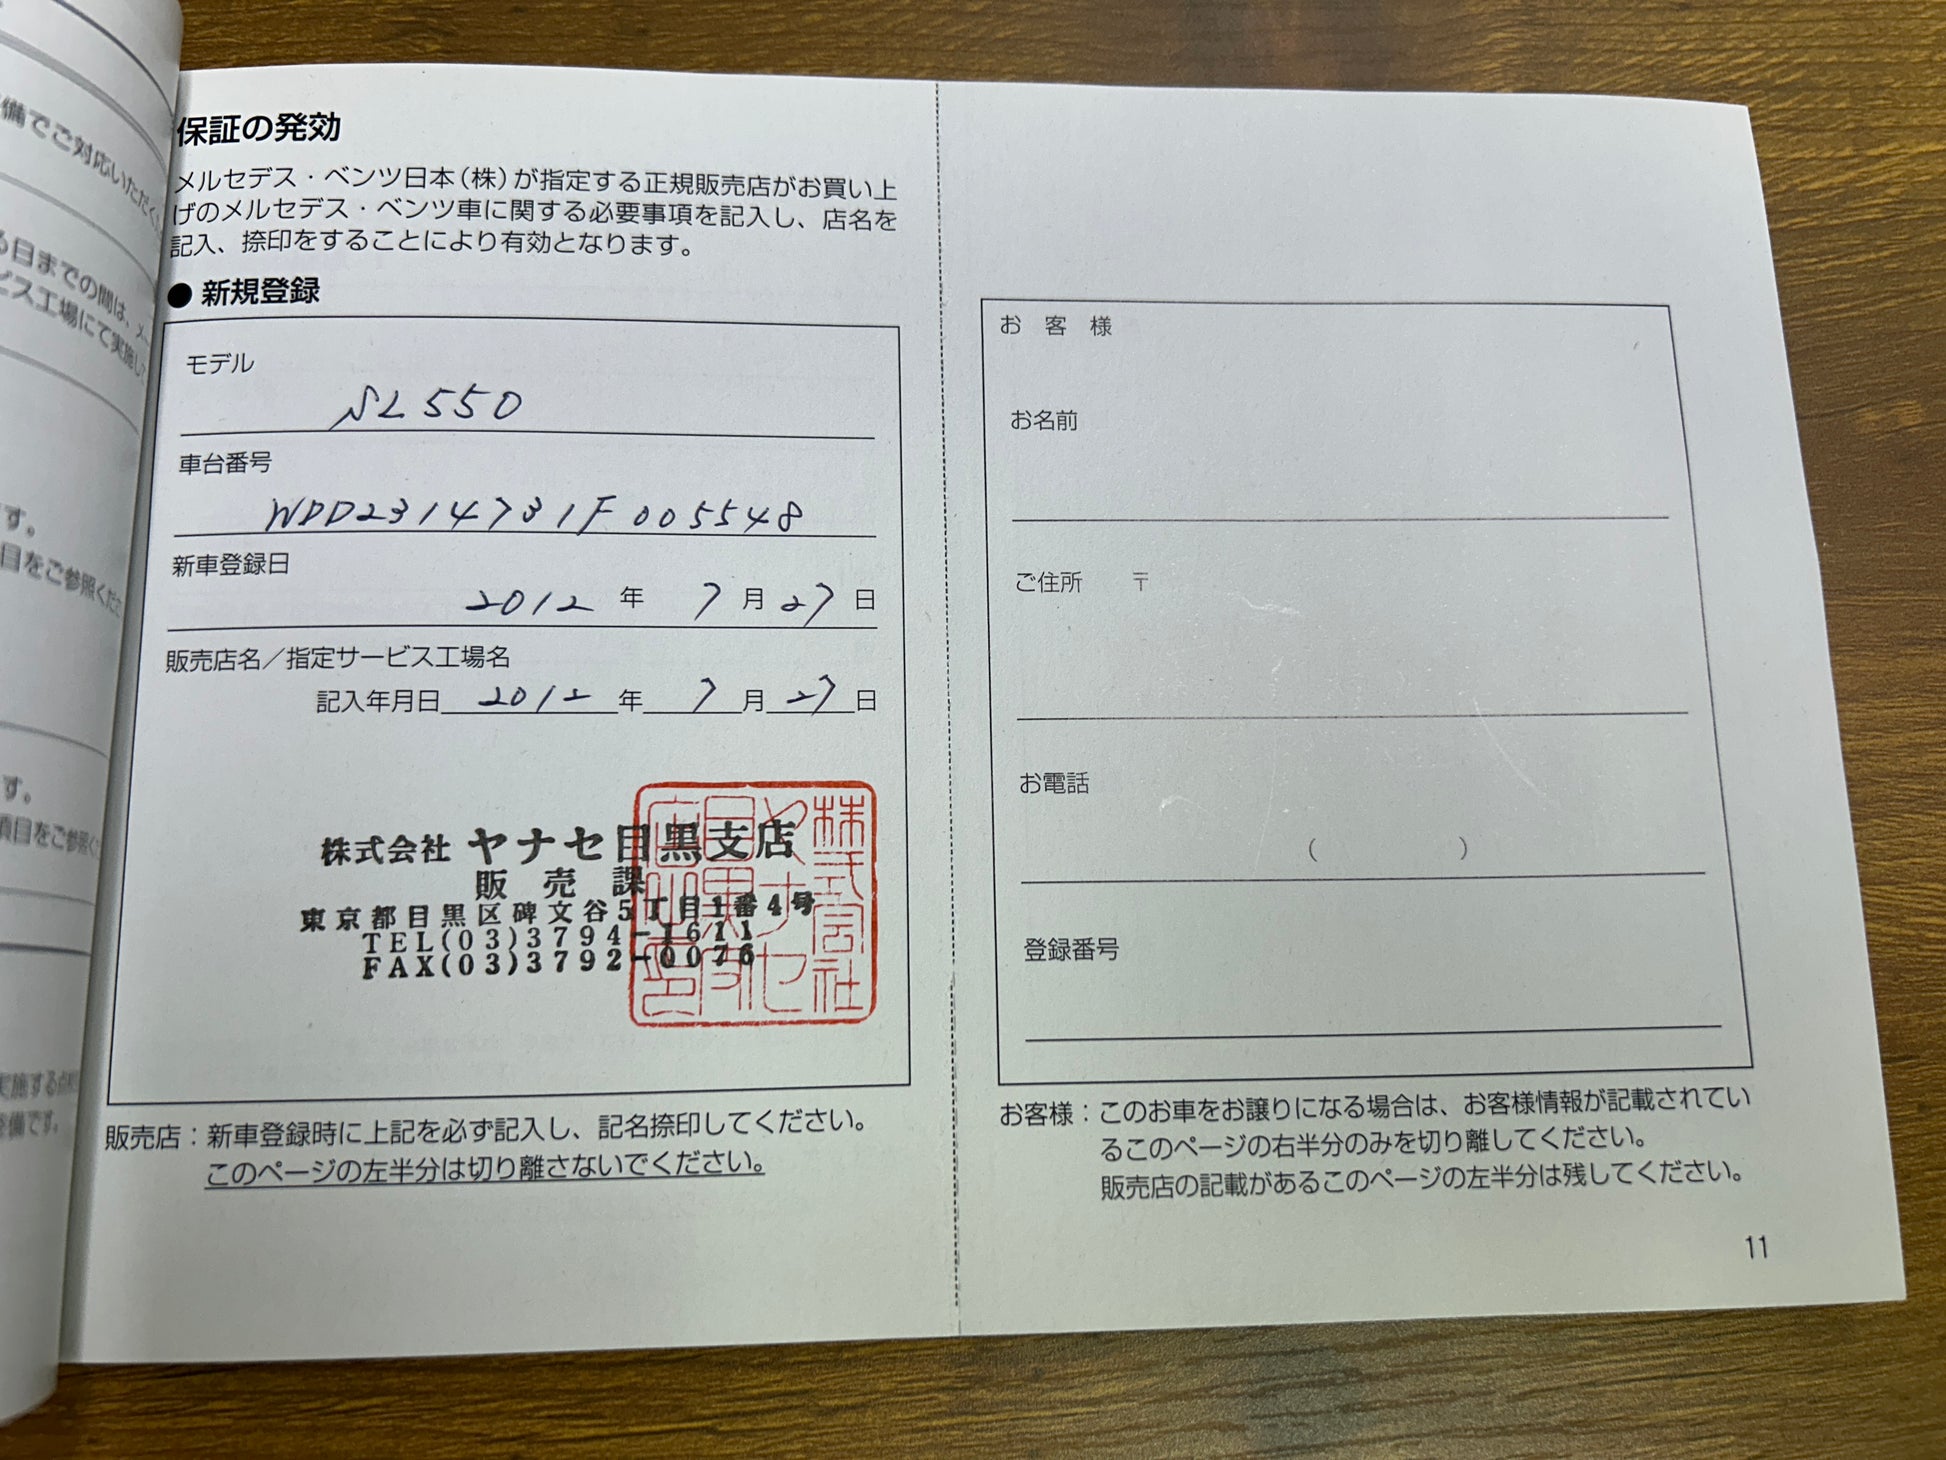 備でご対応いただく
る日までの間は、メ
ビス工場にて実施し
す。
目をご参照くだ
す。
項目をご参照く
実施する点
整備です。
保証の発効
メルセデス・ベンツ日本（株）が指定する正規販売店がお買い上
げのメルセデス・ベンツ車に関する必要事項を記入し、店名を
記入、捺印をすることにより有効となります。
● 新規登録
モデル
SL550
車台番号
WDD2314731F005548
新車登録日
2012 年 7 月 27 日
販売店名／指定サービス工場名
記入年月日 2012 年 7 月 27 日
株式会社 ヤナセ目黒支店
販売課
東京都目黒区碑文谷5丁目1番4号
TEL(03)3794-1611
FAX(03)3792-0076
株式会社
ヤナセ
目黒支
店
販売店：新車登録時に上記を必ず記入し、記名捺印してください。
このページの左半分は切り離さないでください。
お客様
お名前
ご住所 〒
お電話
( )
登録番号
お客様：このお車をお譲りになる場合は、お客様情報が記載されてい
るこのページの右半分のみを切り離してください。
販売店の記載があるこのページの左半分は残してください。
11